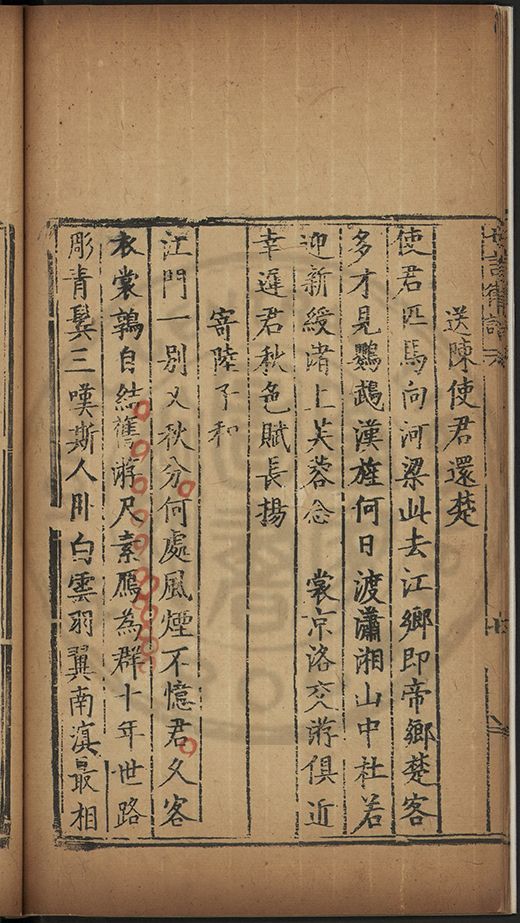 七言律詩
送陳使君還楚
使君匹馬向河梁此去江鄉即帝鄉楚客
多才見鸚鵡漢旌何日渡瀟湘山中杜若
迎新綬渚上芙蓉念 裳京洛交游俱近
幸遲君秋色賦長揚
寄陸子和
江門一別又秋分何處風煙不憶君久客
衣裳鶉自結舊游尺素鴈為群十年世路
彫青鬢三嘆斯人臥白雲羽翼南滇最相